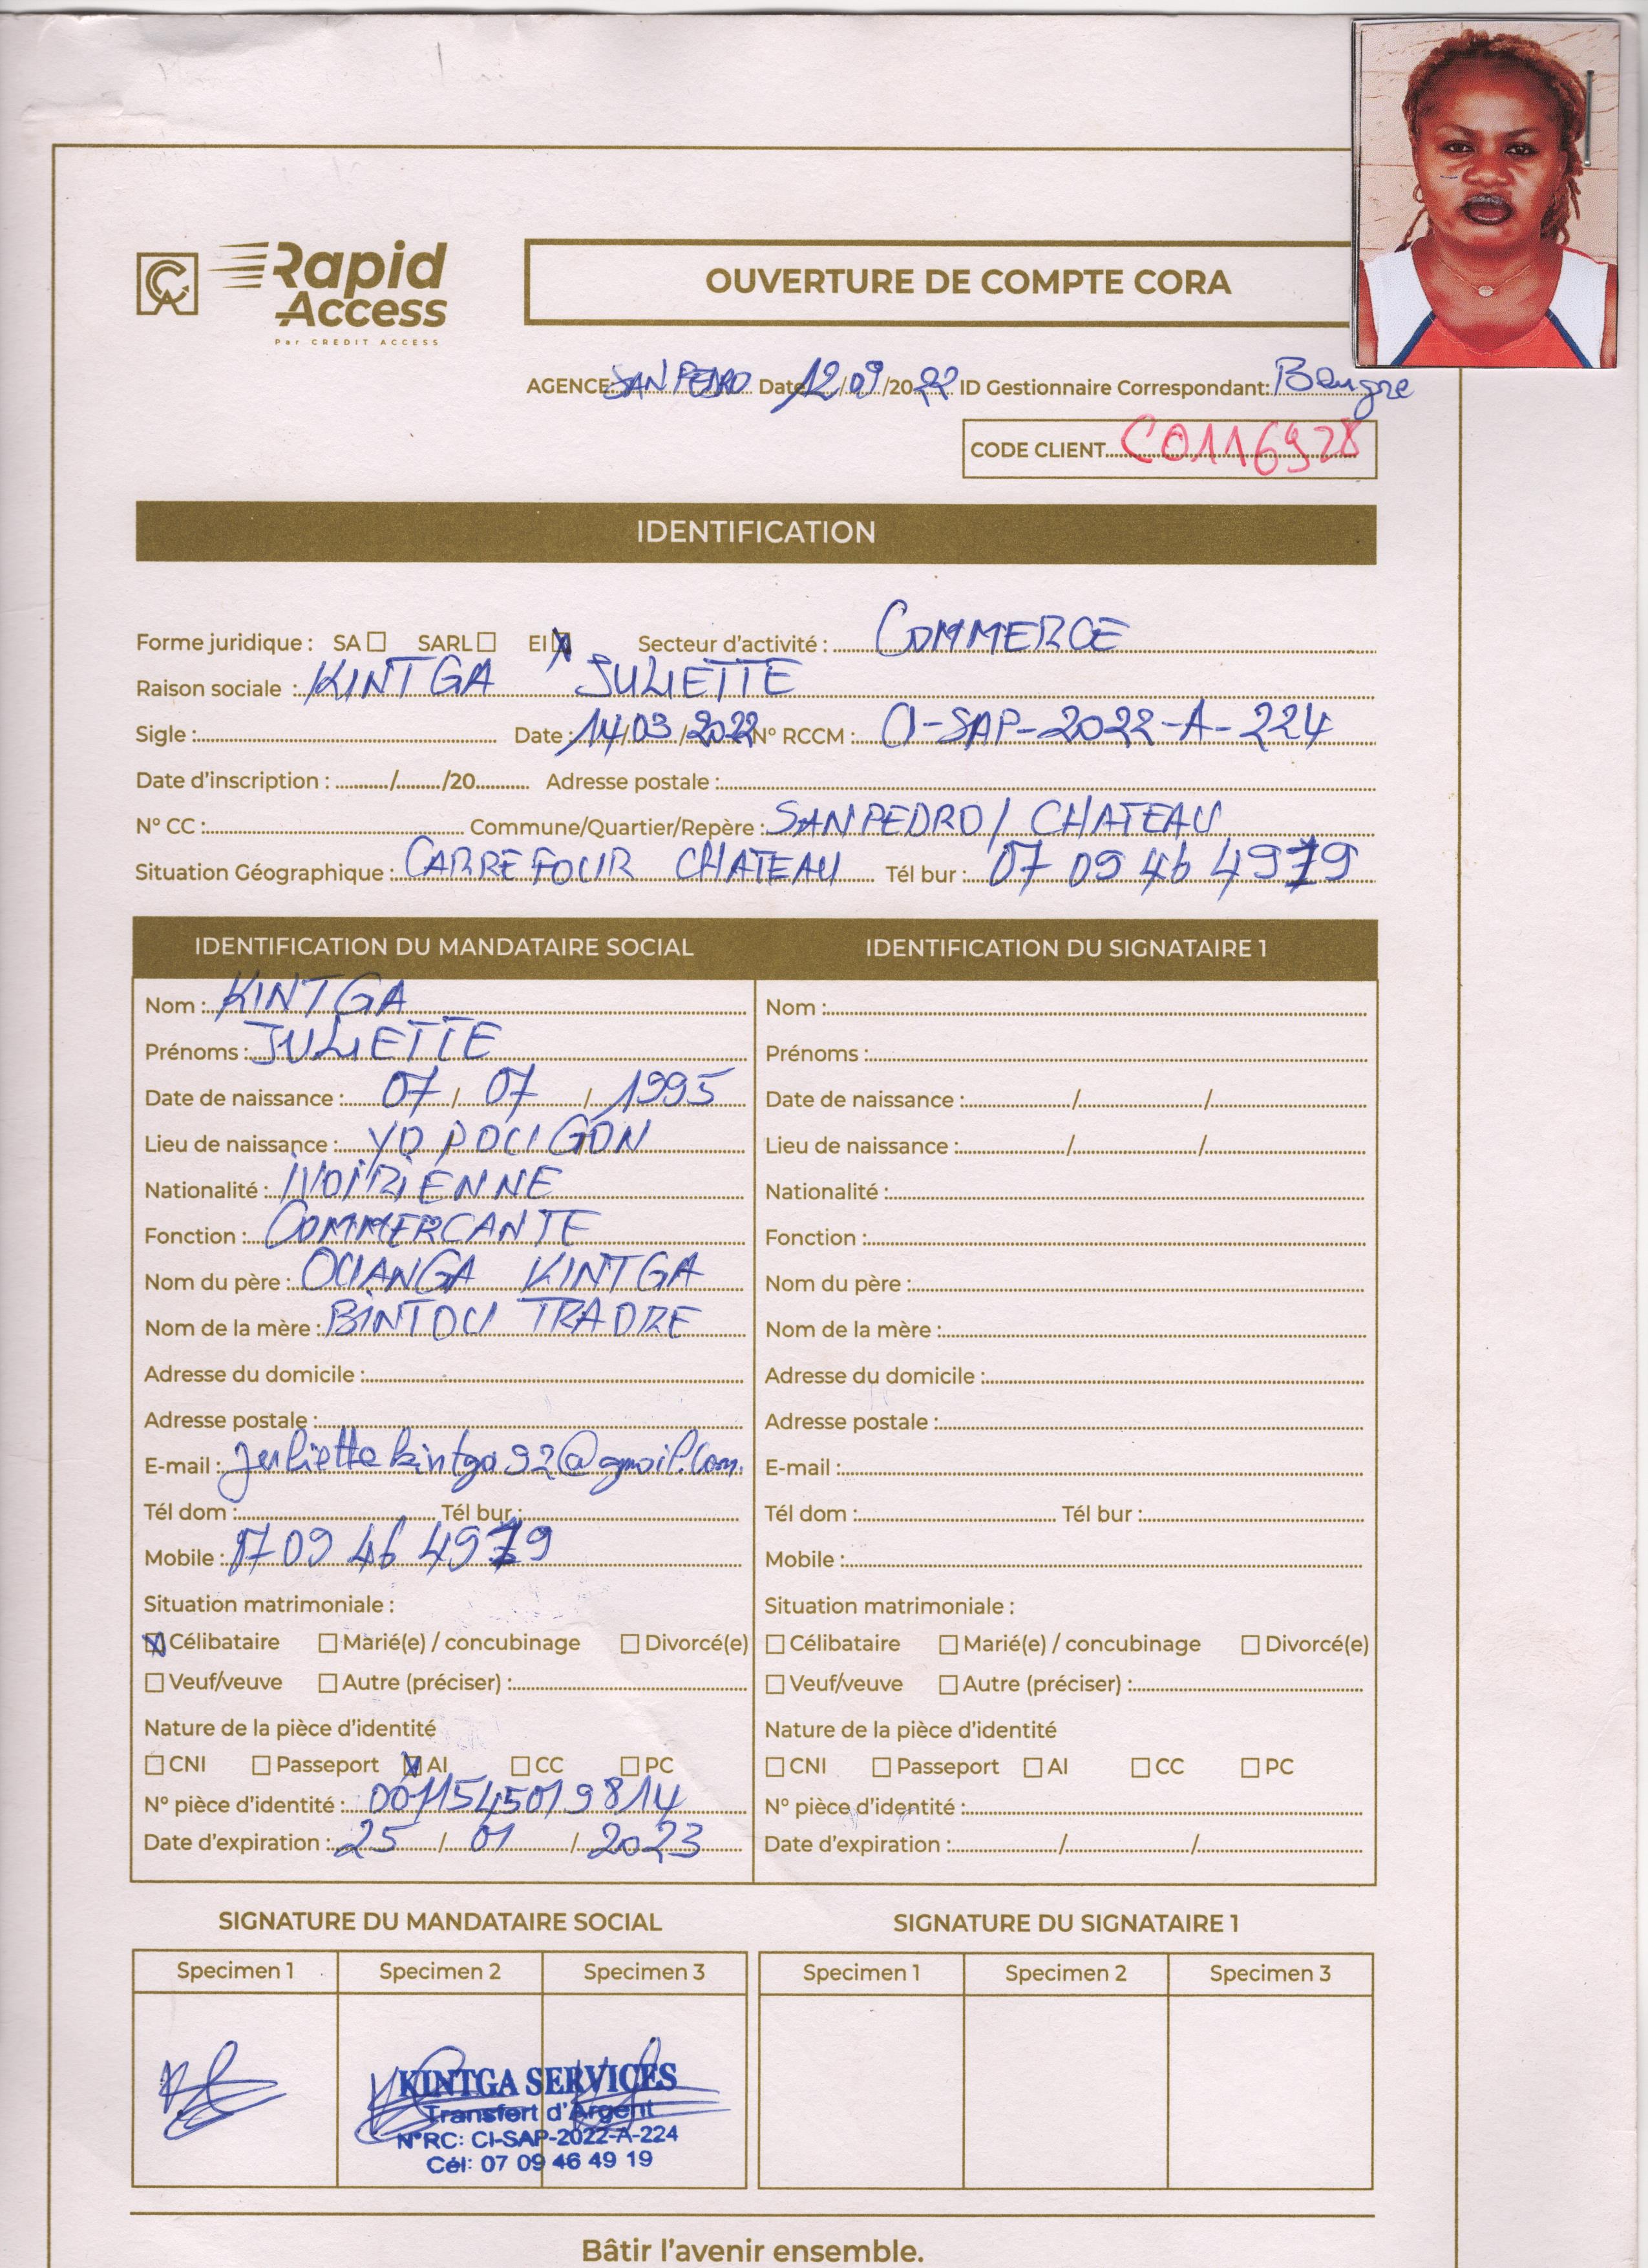 Rapid
Access
Par CREDIT ACCESS
OUVERTURE DE COMPTE CORA
AGENCE: SAN PEDRO Date 12/09/2022 ID Gestionnaire Correspondant: Bengre
CODE CLIENT C0116928
IDENTIFICATION
Forme juridique : SA SARL EI X Secteur d'activité : COMMERCE
Raison sociale : KINTGA JULIETTE
Sigle : Date : 14/03/2022 N° RCCM : CI-SAP-2022-A-224
Date d'inscription : / /20 Adresse postale :
N° CC : Commune/Quartier/Repère : SANPEDRO/ CHATEAU
Situation Géographique : CARREFOUR CHATEAU Tél bur : 07 09 46 49 19
IDENTIFICATION DU MANDATAIRE SOCIAL
Nom : KINTGA
Prénoms : JULIETTE
Date de naissance : 07 / 07 / 1995
Lieu de naissance : YOPOUGON
Nationalité : IVOIRIENNE
Fonction : COMMERCANTE
Nom du père : OUANGA KINTGA
Nom de la mère : BINTOU TRAORE
Adresse du domicile :
Adresse postale :
E-mail : juliettekintga92@gmail.com
Tél dom : Tél bur :
Mobile : 07 09 46 49 19
Situation matrimoniale :
X Célibataire Marié(e) / concubinage Divorcé(e)
Veuf/veuve Autre (préciser) :
Nature de la pièce d'identité
CNI Passeport X AI CC PC
N° pièce d'identité : 0011545019814
Date d'expiration : 25 / 01 / 2023
IDENTIFICATION DU SIGNATAIRE 1
Nom :
Prénoms :
Date de naissance : / /
Lieu de naissance : / /
Nationalité :
Fonction :
Nom du père :
Nom de la mère :
Adresse du domicile :
Adresse postale :
E-mail :
Tél dom : Tél bur :
Mobile :
Situation matrimoniale :
Célibataire Marié(e) / concubinage Divorcé(e)
Veuf/veuve Autre (préciser) :
Nature de la pièce d'identité
CNI Passeport AI CC PC
N° pièce d'identité :
Date d'expiration : / /
SIGNATURE DU MANDATAIRE SOCIAL
Specimen 1 Specimen 2 Specimen 3
KINTGA SERVICES
Transfert d'Argent
N°RC: CI-SAP-2022-A-224
Cél: 07 09 46 49 19
SIGNATURE DU SIGNATAIRE 1
Specimen 1 Specimen 2 Specimen 3
Bâtir l'avenir ensemble.